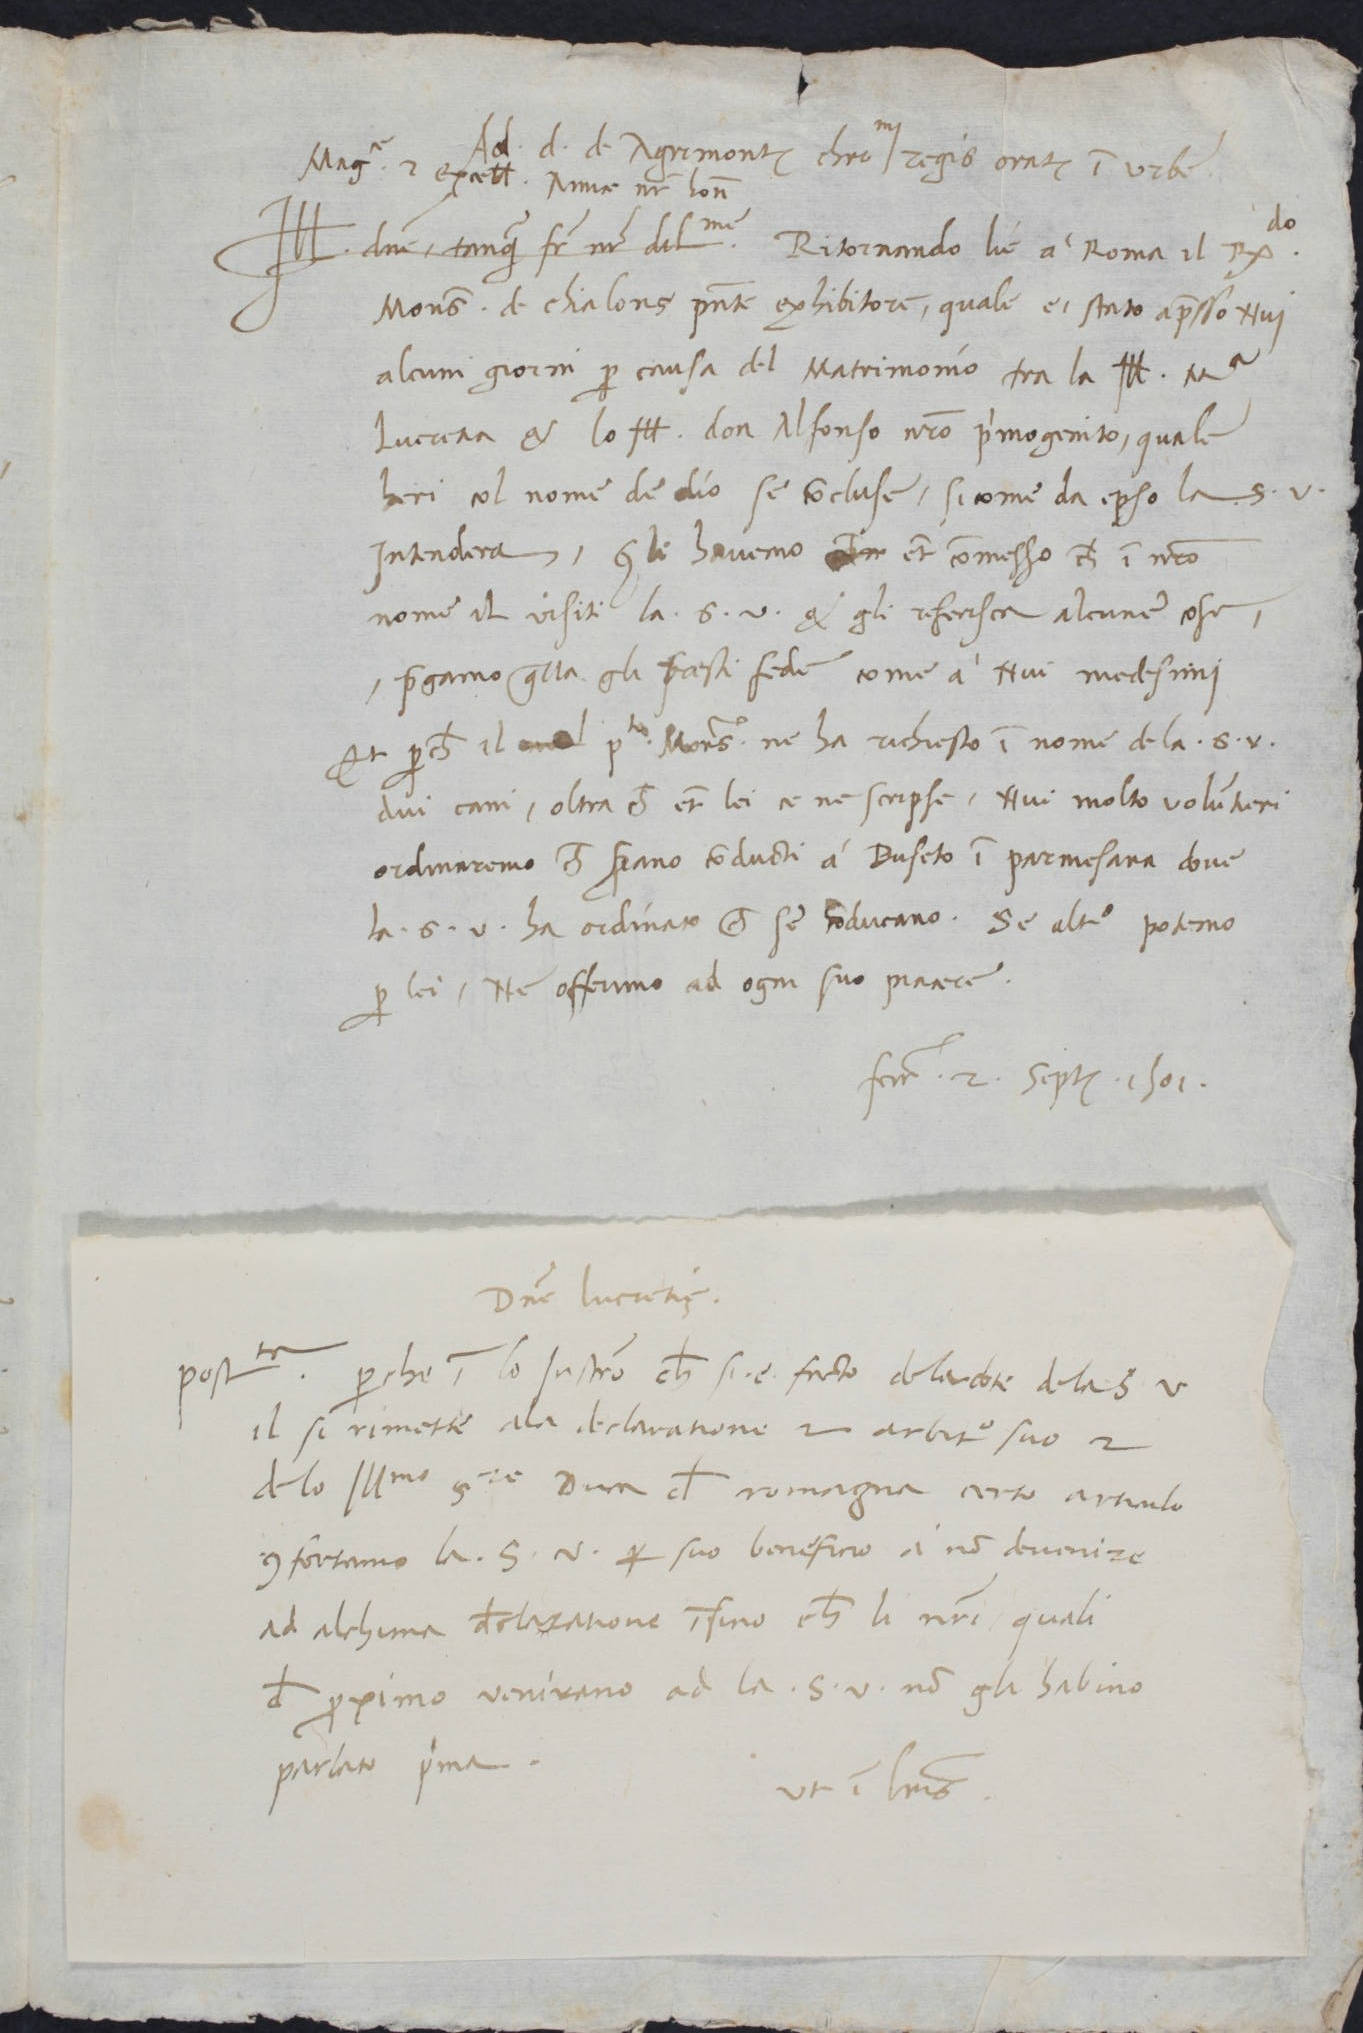 Ad. d. de Agrimontẹ chr̄mi regis oratẹ ī urbe
Mag.ce 2 excell. Amice nr̄ hon̄
Ill. dn̄e, tanq̄ fr̄ nr̄ dil.me Ritornando lí a' Roma il R.do
Mons. de chialons pn̄te exhibitore, quale e, stato ap̄sso Nui
alcuni giorni p causa del Matrimonio tra la Ill. Ma
Lucretia & lo Ill. don Alfonso nr̄o p'mogenito, quale
heri col nome de dio se cōcluse, sicome da epso la S. v.
Intendera, gli havemo et̄ cōmesso ch̄ ī nr̄o
nome il visiti la. S. v. & gli referisca alcune cose,
, p̄gamo q̄lla gli p̄sti fede come a' Nui medesimi
Et pch̄ il p.to Mons.r ne ha richiesto ī nome de la. S. v.
dui cani, oltra ch̄ et̄ lei ce ne scripse, Nui molto volūtieri
ordinaremo ch̄ s̄rano cōducti a' Buseto ī parmesana dove
la. S. v. ha ordinato ch̄ se cōducano. Se alt.o potemo
p lei, Ne offerimo ad ogni suo piacere.
ferr̄. 2. Septẹ. 1501.
Dn̄e Lucretię.
post.ta. perche ī lo Instr̄o ch̄ si e facto de la dote de la S v
il si rimette ala declaratione 2 arbit.o suo 2
de lo Ill.mo S.re Duca d̄ romagna certo articulo
9fortamo la. S. v. p suo beneficio a' nō devenire
ad alchuna d̄claratione īsino ch̄ li nr̄i quali
d̄ proximo venirano ad la. S. v. nō gli habino
parlato p'ma.
ut ī lr̄is.